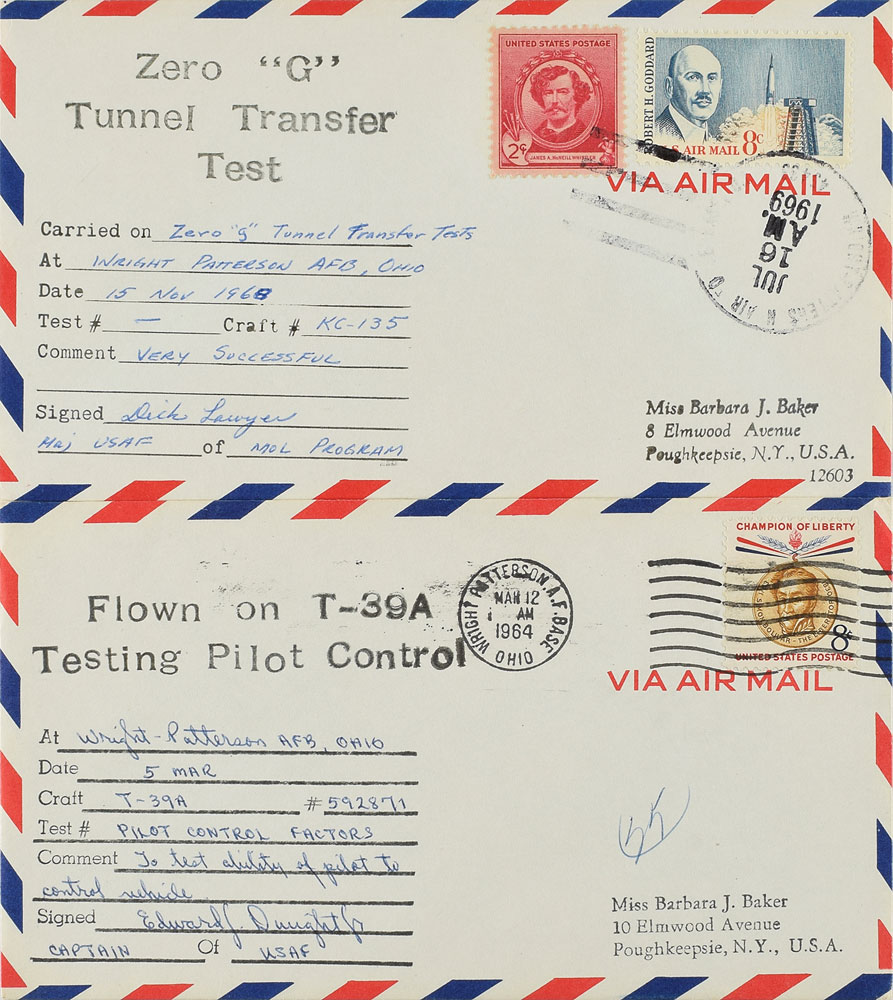 Zero "G"
Tunnel Transfer
Test
UNITED STATES POSTAGE
2¢
JAMES A. McNEILL WHISTLER
ROBERT H. GODDARD
U.S. AIR MAIL 8c
VIA AIR MAIL
JUL 16
A.M.
1969
Carried on Zero "g" Tunnel Transfer Tests
At WRIGHT PATTERSON AFB, OHIO
Date 15 NOV 1968
Test # — Craft # KC-135
Comment VERY SUCCESSFUL
Signed Dick Lawyer
Maj USAF of MOL PROGRAM
Miss Barbara J. Baker
8 Elmwood Avenue
Poughkeepsie, N.Y., U.S.A.
12603
CHAMPION OF LIBERTY
8c
UNITED STATES POSTAGE
VIA AIR MAIL
WRIGHT PATTERSON A.F. BASE
MAR 12
AM
1964
OHIO
Flown on T-39A
Testing Pilot Control
At Wright-Patterson AFB, OHIO
Date 5 MAR
Craft T-39A #592871
Test # PILOT CONTROL FACTORS
Comment To test ability of pilot to
control vehicle
Signed Edward J. Dwight Jr
CAPTAIN Of USAF
Miss Barbara J. Baker
10 Elmwood Avenue
Poughkeepsie, N.Y., U.S.A.